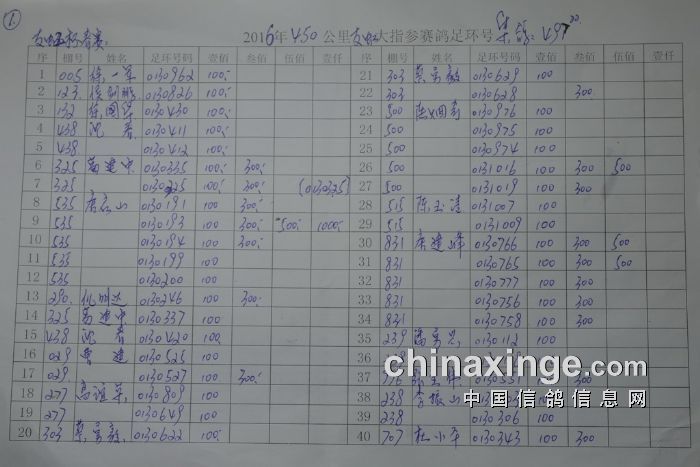 1.
2016年450公里 大指参赛鸽足环号
序 棚号 姓名 足环号码 壹佰 叁佰 伍佰 壹仟
1 005 徐一军 0130962 100
2 123 0130826 100
3 132 徐国华 0130430 100
4 438 沈春 0130411 100
5 438 0130412 100
6 325 葛建中 0130335 100 300
7 325 0130325 100 300 (0130325)
8 535 0130191 100 300
9 535 0130193 100 300 500 1000
10 535 0130194 100 300
11 535 0130199 100
12 535 0130200 100
13 290 0130246 100 300
14 325 葛建中 0130337 100
15 438 沈春 0130420 100
16 029 曹建 0130525 100
17 029 0130527 100 300
18 277 0130809 100
19 277 0130649 100
20 303 0130622 100 300
序 棚号 姓名 足环号码 壹佰 叁佰 伍佰 壹仟
21 303 0130629 100
22 303 0130628 300
23 500 0130976 100
24 500 0130975 100
25 500 0130974 100
26 500 0131016 100 300 500
27 500 0131019 100 300
28 515 陈玉清 0131007 100
29 515 0131009 100
30 831 唐建峰 0130766 100 300 500
31 831 0130765 100 300 500
32 831 0130777 100 300
33 831 0130756 100 300
34 831 0130758 100 300
35 239 0130112 100
36
37 776 300
38 238 李振山
39 238 0130306 100
40 707 杜小平 0130343 100 300
chinaxinge.com
中国信鸽信息网